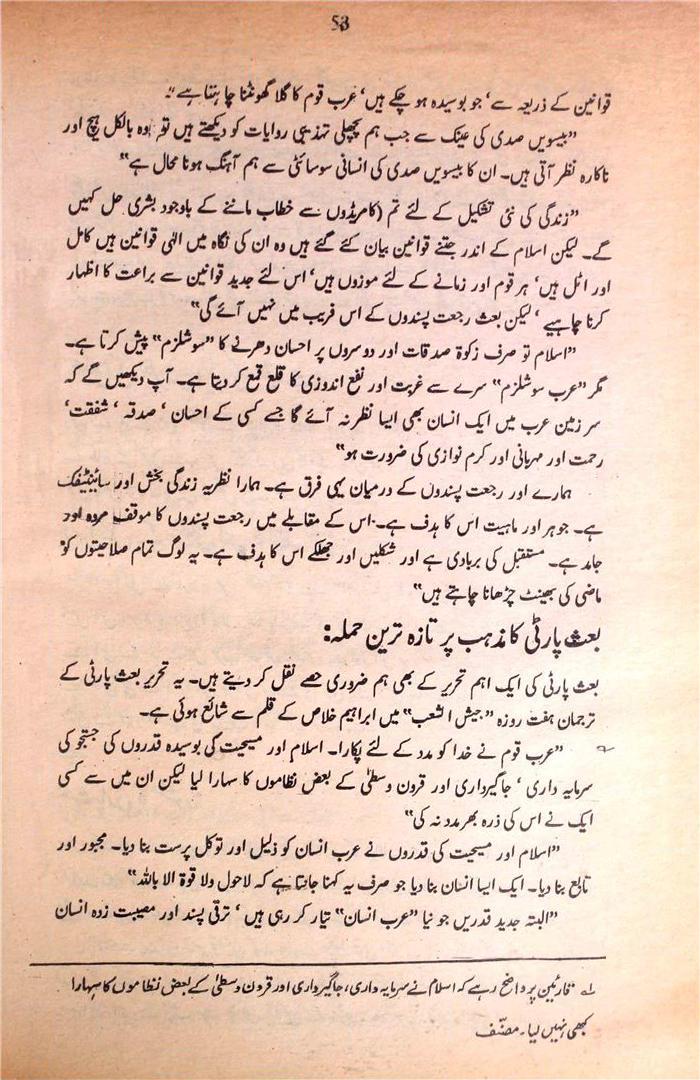 53
قوانین کے ذریعہ سے‘ جو بوسیدہ ہو چکے ہیں‘ عرب قوم کا گلا گھونٹنا چاہتا ہے“
”بیسویں صدی کی عینک سے جب ہم پچھلی تہذیبی روایات کو دیکھتے ہیں تو وہ بالکل ہیچ اور
ناکارہ نظر آتی ہیں۔ ان کا بیسویں صدی کی انسانی سوسائٹی سے ہم آہنگ ہونا محال ہے“
”زندگی کی نئی تشکیل کے لئے تم (کامریڈوں سے خطاب ماننے کے باوجود بشری حل کہیں
گے۔ لیکن اسلام کے اندر جتنے قوانین بیان کئے گئے ہیں وہ ان کی نگاہ میں الٰہی قوانین ہیں کامل
اور اٹل ہیں‘ ہر قوم اور زمانے کے لئے موزوں ہیں‘ اس لئے جدید قوانین سے براعت کا اظہار
کرنا چاہیے‘ لیکن بعث رجعت پسندوں کے اس فریب میں نہیں آئے گی“
”اسلام تو صرف زکوۃ صدقات اور دوسروں پر احسان دھرنے کا ”سوشلزم“ پیش کرتا ہے۔
مگر ”عرب سوشلزم“ سرے سے غربت اور نفع اندوزی کا قلع قمع کر دیتا ہے۔ آپ دیکھیں گے کہ
سر زمین عرب میں ایک انسان بھی ایسا نظر نہ آئے گا جسے کسی کے احسان‘ صدقہ‘ شفقت‘
رحمت اور مہربانی اور کرم نوازی کی ضرورت ہو“
ہمارے اور رجعت پسندوں کے درمیان یہی فرق ہے۔ ہمارا نظریہ زندگی بخش اور سائینٹیفک
ہے۔ جوہر اور ماہیت اس کا ہدف ہے۔ اس کے مقابلے میں رجعت پسندوں کا موقف مردہ اور
جامد ہے۔ مستقبل کی بربادی ہے اور شکلیں اور چھلکے اس کا ہدف ہے۔ یہ لوگ تمام صلاحیتوں کو
ماضی کی بھینٹ چڑھانا چاہتے ہیں“
بعث پارٹی کا مذہب پر تازہ ترین حملہ:
بعث پارٹی کی ایک اہم تحریر کے بھی ہم ضروری حصے نقل کر دیتے ہیں۔ یہ تحریر بعث پارٹی کے
ترجمان ہفت روزہ ”جیش الشعب“ میں ابراہیم خلاص کے قلم سے شائع ہوئی ہے۔
”عرب قوم نے خدا کو مدد کے لئے پکارا۔ اسلام اور مسیحیت کی بوسیدہ قدروں کی جستجو کی
سرمایہ داری‘ جاگیرداری اور قرون وسطیٰ کے بعض نظاموں کا سہارا لیا لیکن ان میں سے کسی
ایک نے اس کی ذرہ بھر مدد نہ کی“
”اسلام اور مسیحیت کی قدروں نے عرب انسان کو ذلیل اور توکل پرست بنا دیا۔ مجبور اور
تابع بنا دیا۔ ایک ایسا انسان بنا دیا جو صرف یہ کہنا جانتا ہے کہ لاحول ولا قوۃ الا باللہ“
”البتہ جدید قدریں جو نیا ”عرب انسان“ تیار کر رہی ہیں‘ ترقی پسند اور مصیبت زدہ انسان
لے قارئین پر واضح رہے کہ اسلام نے سرمایہ داری، جاگیرداری اور قرون وسطیٰ کے بعض نظاموں کا سہارا
کبھی نہیں لیا۔ مصنّف